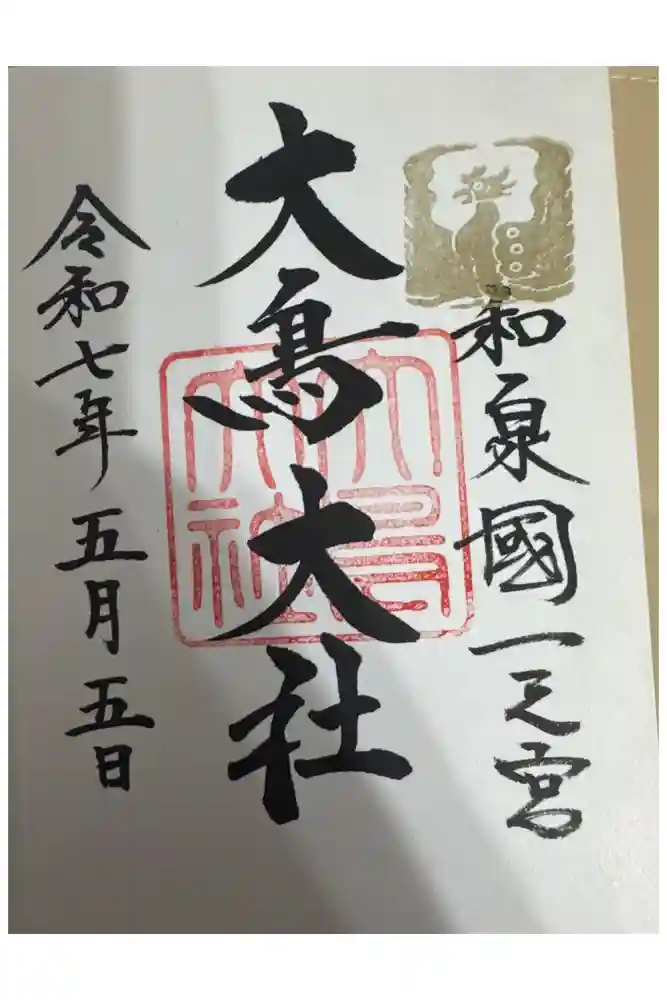 和泉國一之宮
大鳥大社
大鳥大社
令和七年五月五日